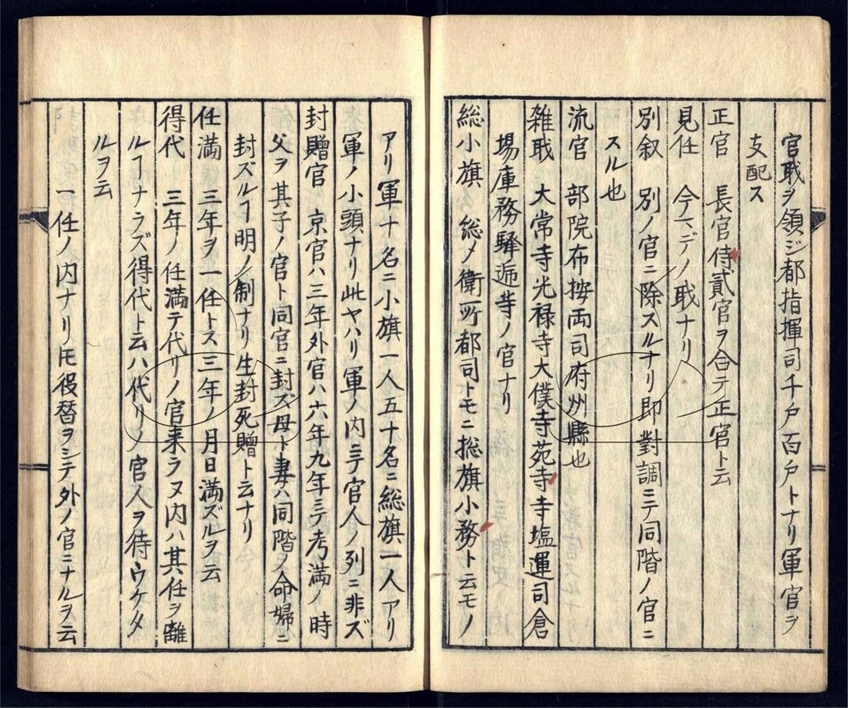 官職ヲ領ジ都指揮司千戸百戸トナリ軍官ヲ
支配ス
正官 長官侍貳官ヲ合テ正官ト云
見任 今マデノ職ナリ
別叙 別ノ官ニ除スルナリ即對調ミテ同階ノ官ニ
スル也
流官 部院布按両司府州縣也
雑職 大常寺光禄寺大僕寺苑寺寺塩運司倉
場庫務驛逓寺ノ官ナリ
総小旗 総〆衛所都司トモニ総旗小務ト云モノ
アリ軍十名ニ小旗一人五十名ニ総旗一人アリ
軍ノ小頭ナリ此ヤハリ軍ノ内ミテ官人ノ列ニ非ズ
封贈官 京官ハ三年外官ハ六年九年ミテ考満ノ時
父ヲ其子ノ官ト同官ニ封ズ母ト妻ハ同階ノ命婦ニ
封ズルヿ明ノ制ナリ生封死贈ト云ナリ
任満 三年ヲ一任トス三年ノ月日満ズルヲ云
得代 三年ノ任満テ代リノ官来ラヌ内ハ其任ヲ離
ルヿナラズ得代ト云ハ代リノ官人ヲ待ウケタ
ルヲ云
一任ノ内ナリ𪜈役替ヲシテ外ノ官ニナルヲ云